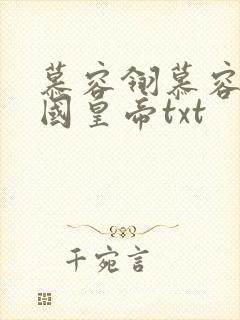 慕容翎慕容
國皇帝txt
千宛言